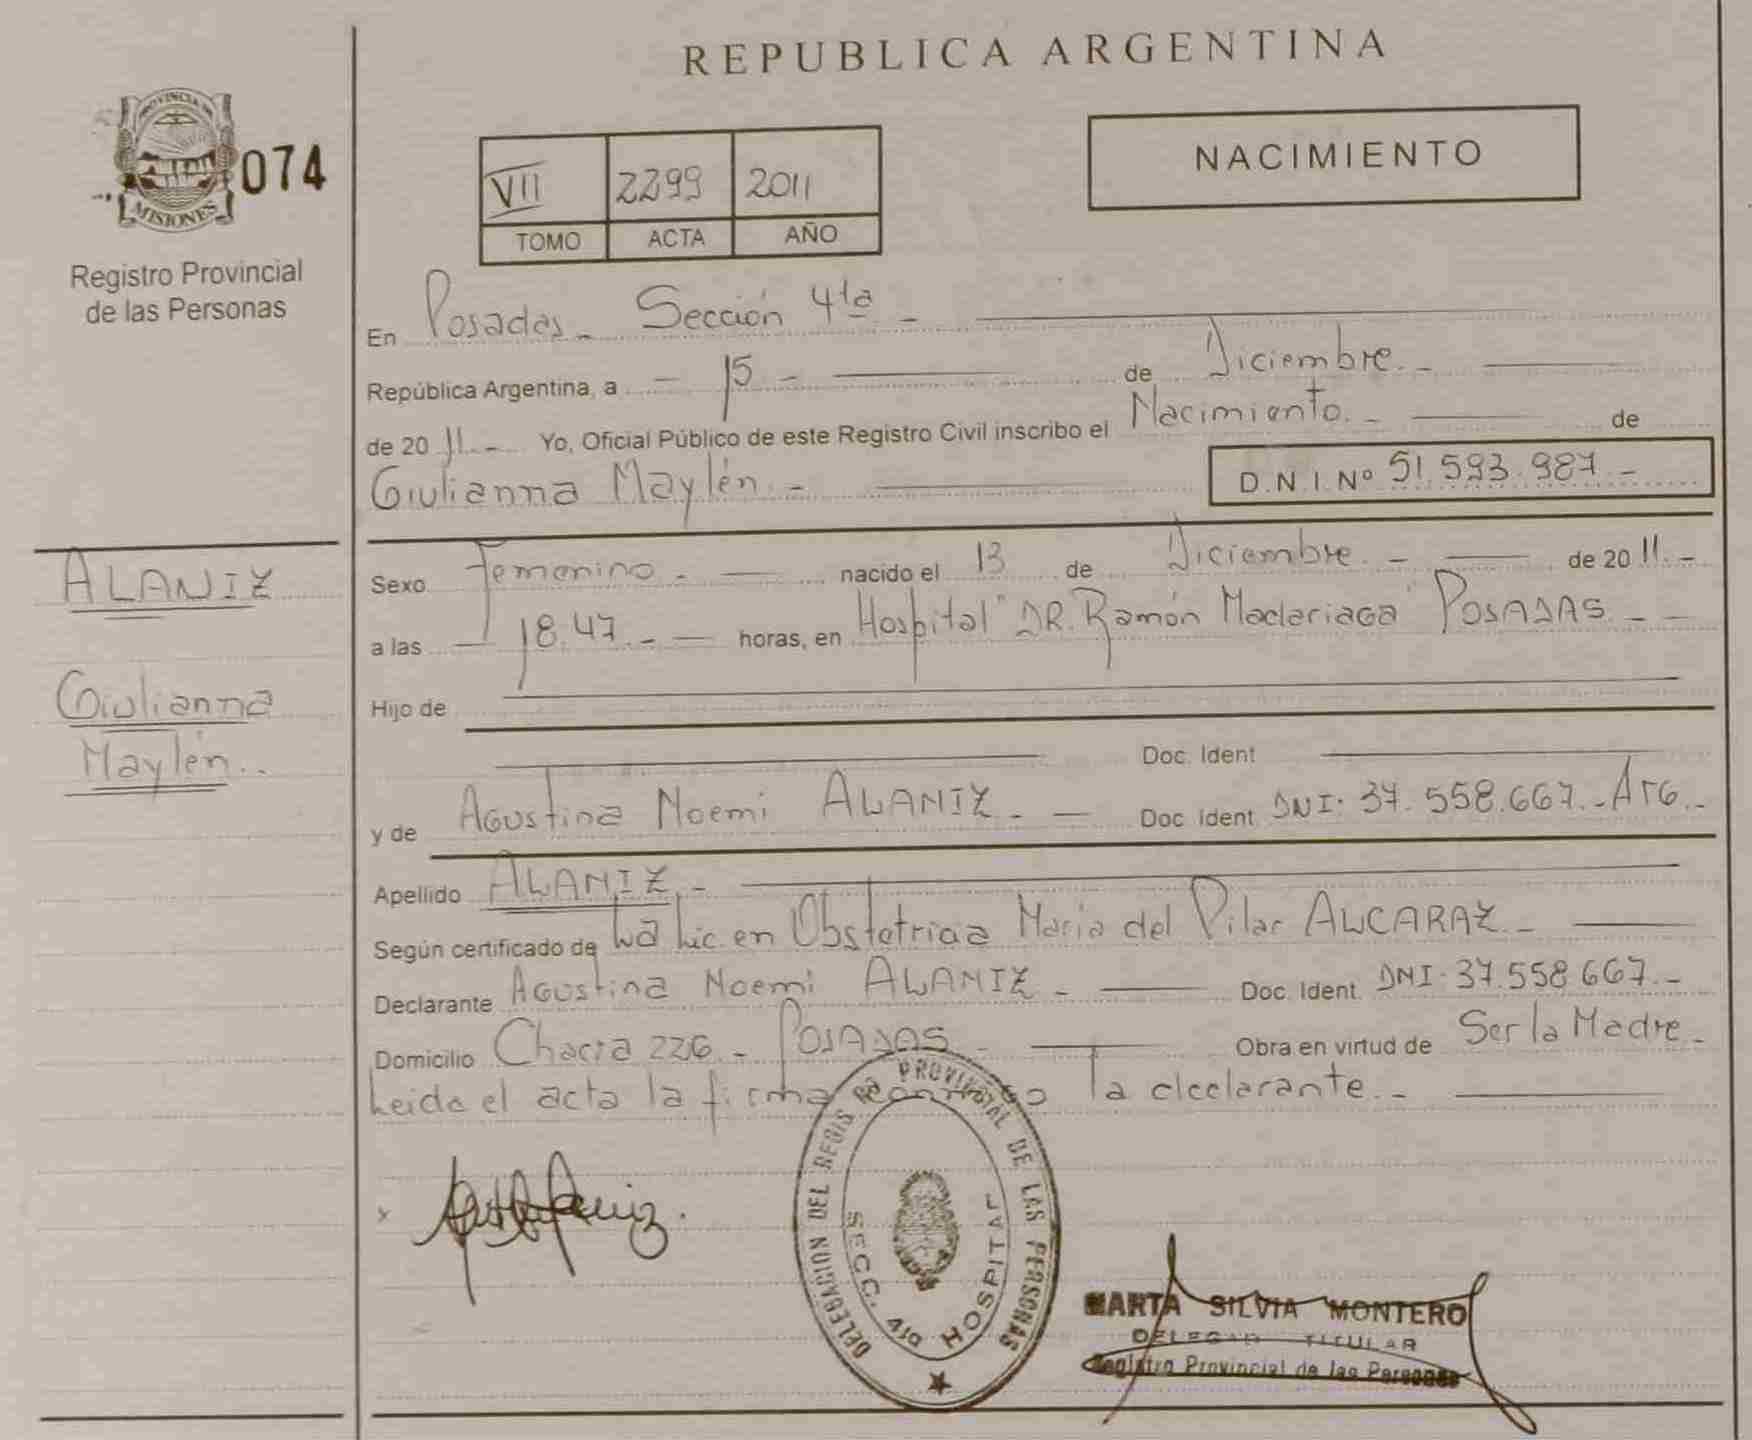 REPUBLICA ARGENTINA
PROVINCIA DE
MISIONES
074
Registro Provincial
de las Personas
VII 2299 2011
TOMO ACTA AÑO
NACIMIENTO
En Posadas - Sección 4ta -
República Argentina, a - 15 - de Diciembre. -
de 20 11. - Yo, Oficial Público de este Registro Civil inscribo el Nacimiento. - de
Giulianna Maylén. - D.N.I. Nº 51.593.987. -
ALANIZ
Giulianna
Maylén..
Sexo Femenino - nacido el 13 de Diciembre. - de 20 11. -
a las 18.47. - horas, en Hospital "DR. Ramón Madariaga" POSADAS. -
Hijo de
Doc. Ident
y de Agustina Noemi ALANIZ. - Doc. Ident DNI: 37.558.667. - Arg. -
Apellido ALANIZ. -
Según certificado de La Lic. en Obstetricia Maria del Pilar ALCARAZ. -
Declarante Agustina Noemi ALANIZ - Doc. Ident. DNI: 37.558.667. -
Domicilio Chacra 226 - POSADAS - Obra en virtud de Ser la Madre -
Leida el acta la firma conmigo la declarante. -
DELEGACION DEL REGISTRO PROVINCIAL DE LAS PERSONAS
SECC. 4ta HOSPITAL
MARTA SILVIA MONTERO
DELEGAD TITULAR
Registro Provincial de las Personas